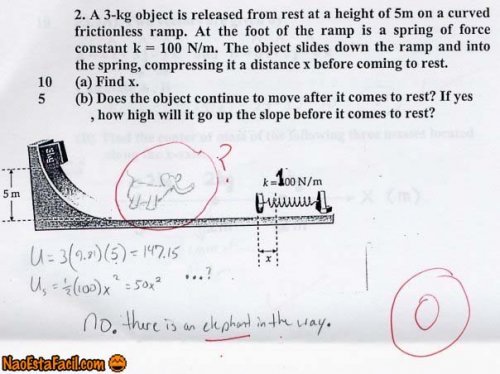 2. A 3-kg object is released from rest at a height of 5m on a curved
frictionless ramp. At the foot of the ramp is a spring of force
constant k = 100 N/m. The object slides down the ramp and into
the spring, compressing it a distance x before coming to rest.
10 (a) Find x.
5 (b) Does the object continue to move after it comes to rest? If yes
, how high will it go up the slope before it comes to rest?
?
5 m
k = 100 N/m
x
U = 3(9.81)(5) = 147.15
Us = ½(100)x² = 50x² ...?
No. there is an elephant in the way.
0
NaoEstaFacil.com